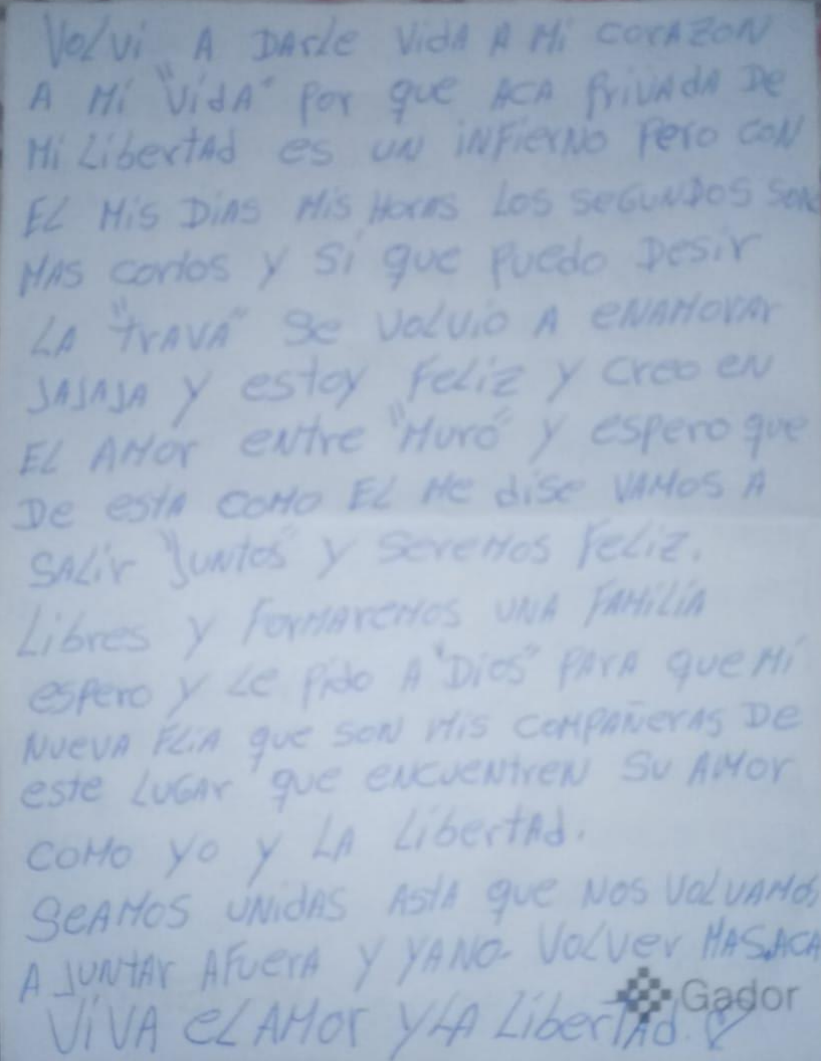 Volvi A DArle VidA A Mi corAZON
A Mi "VidA" Por que ACA PriVAdA De
Mi LibertAd es UN iNFierNo Pero CON
EL Mis DiAS Mis HorAs Los SeGUNDOS SON
MAS cortos y Si que Puedo Desir
LA "trAVA" Se VolVio A eNAMorAr
JAJAJA y estoy Feliz y Creo en
EL AMor eNtre "Muro" y espero que
De estA COMO EL Me dise VAMOS A
SALir "JUNtos" y SereMos Feliz.
Libres y ForMAreMos UNA FAMiLiA
espero y Le Pido A "Dios" PArA que Mi
NUeVA FLiA que SON Mis COMPAÑerAS De
este LUGAr que eNcueNtreN Su AMor
COMO yo y LA LibertAd.
SeAMOS UNidAS AstA que NOS VolVAMOS
A JUNtAr AFuerA y YA NO VolVer MAS ACA
ViVA eL AMor y LA LibertAd. ♡
Gador